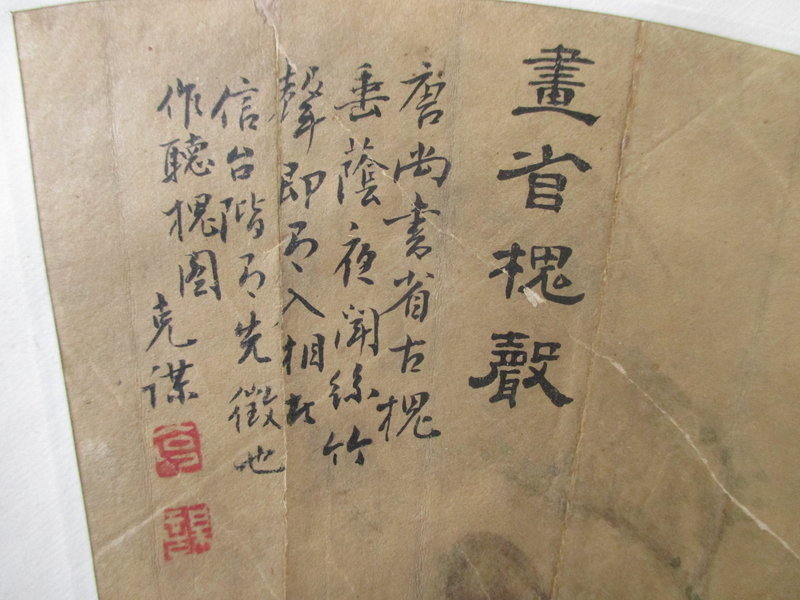 畫省槐聲
唐尚书省古槐
垂蔭夜聞絲竹
聲即有入相者
信台階有先徵也
作聽槐图
克謀